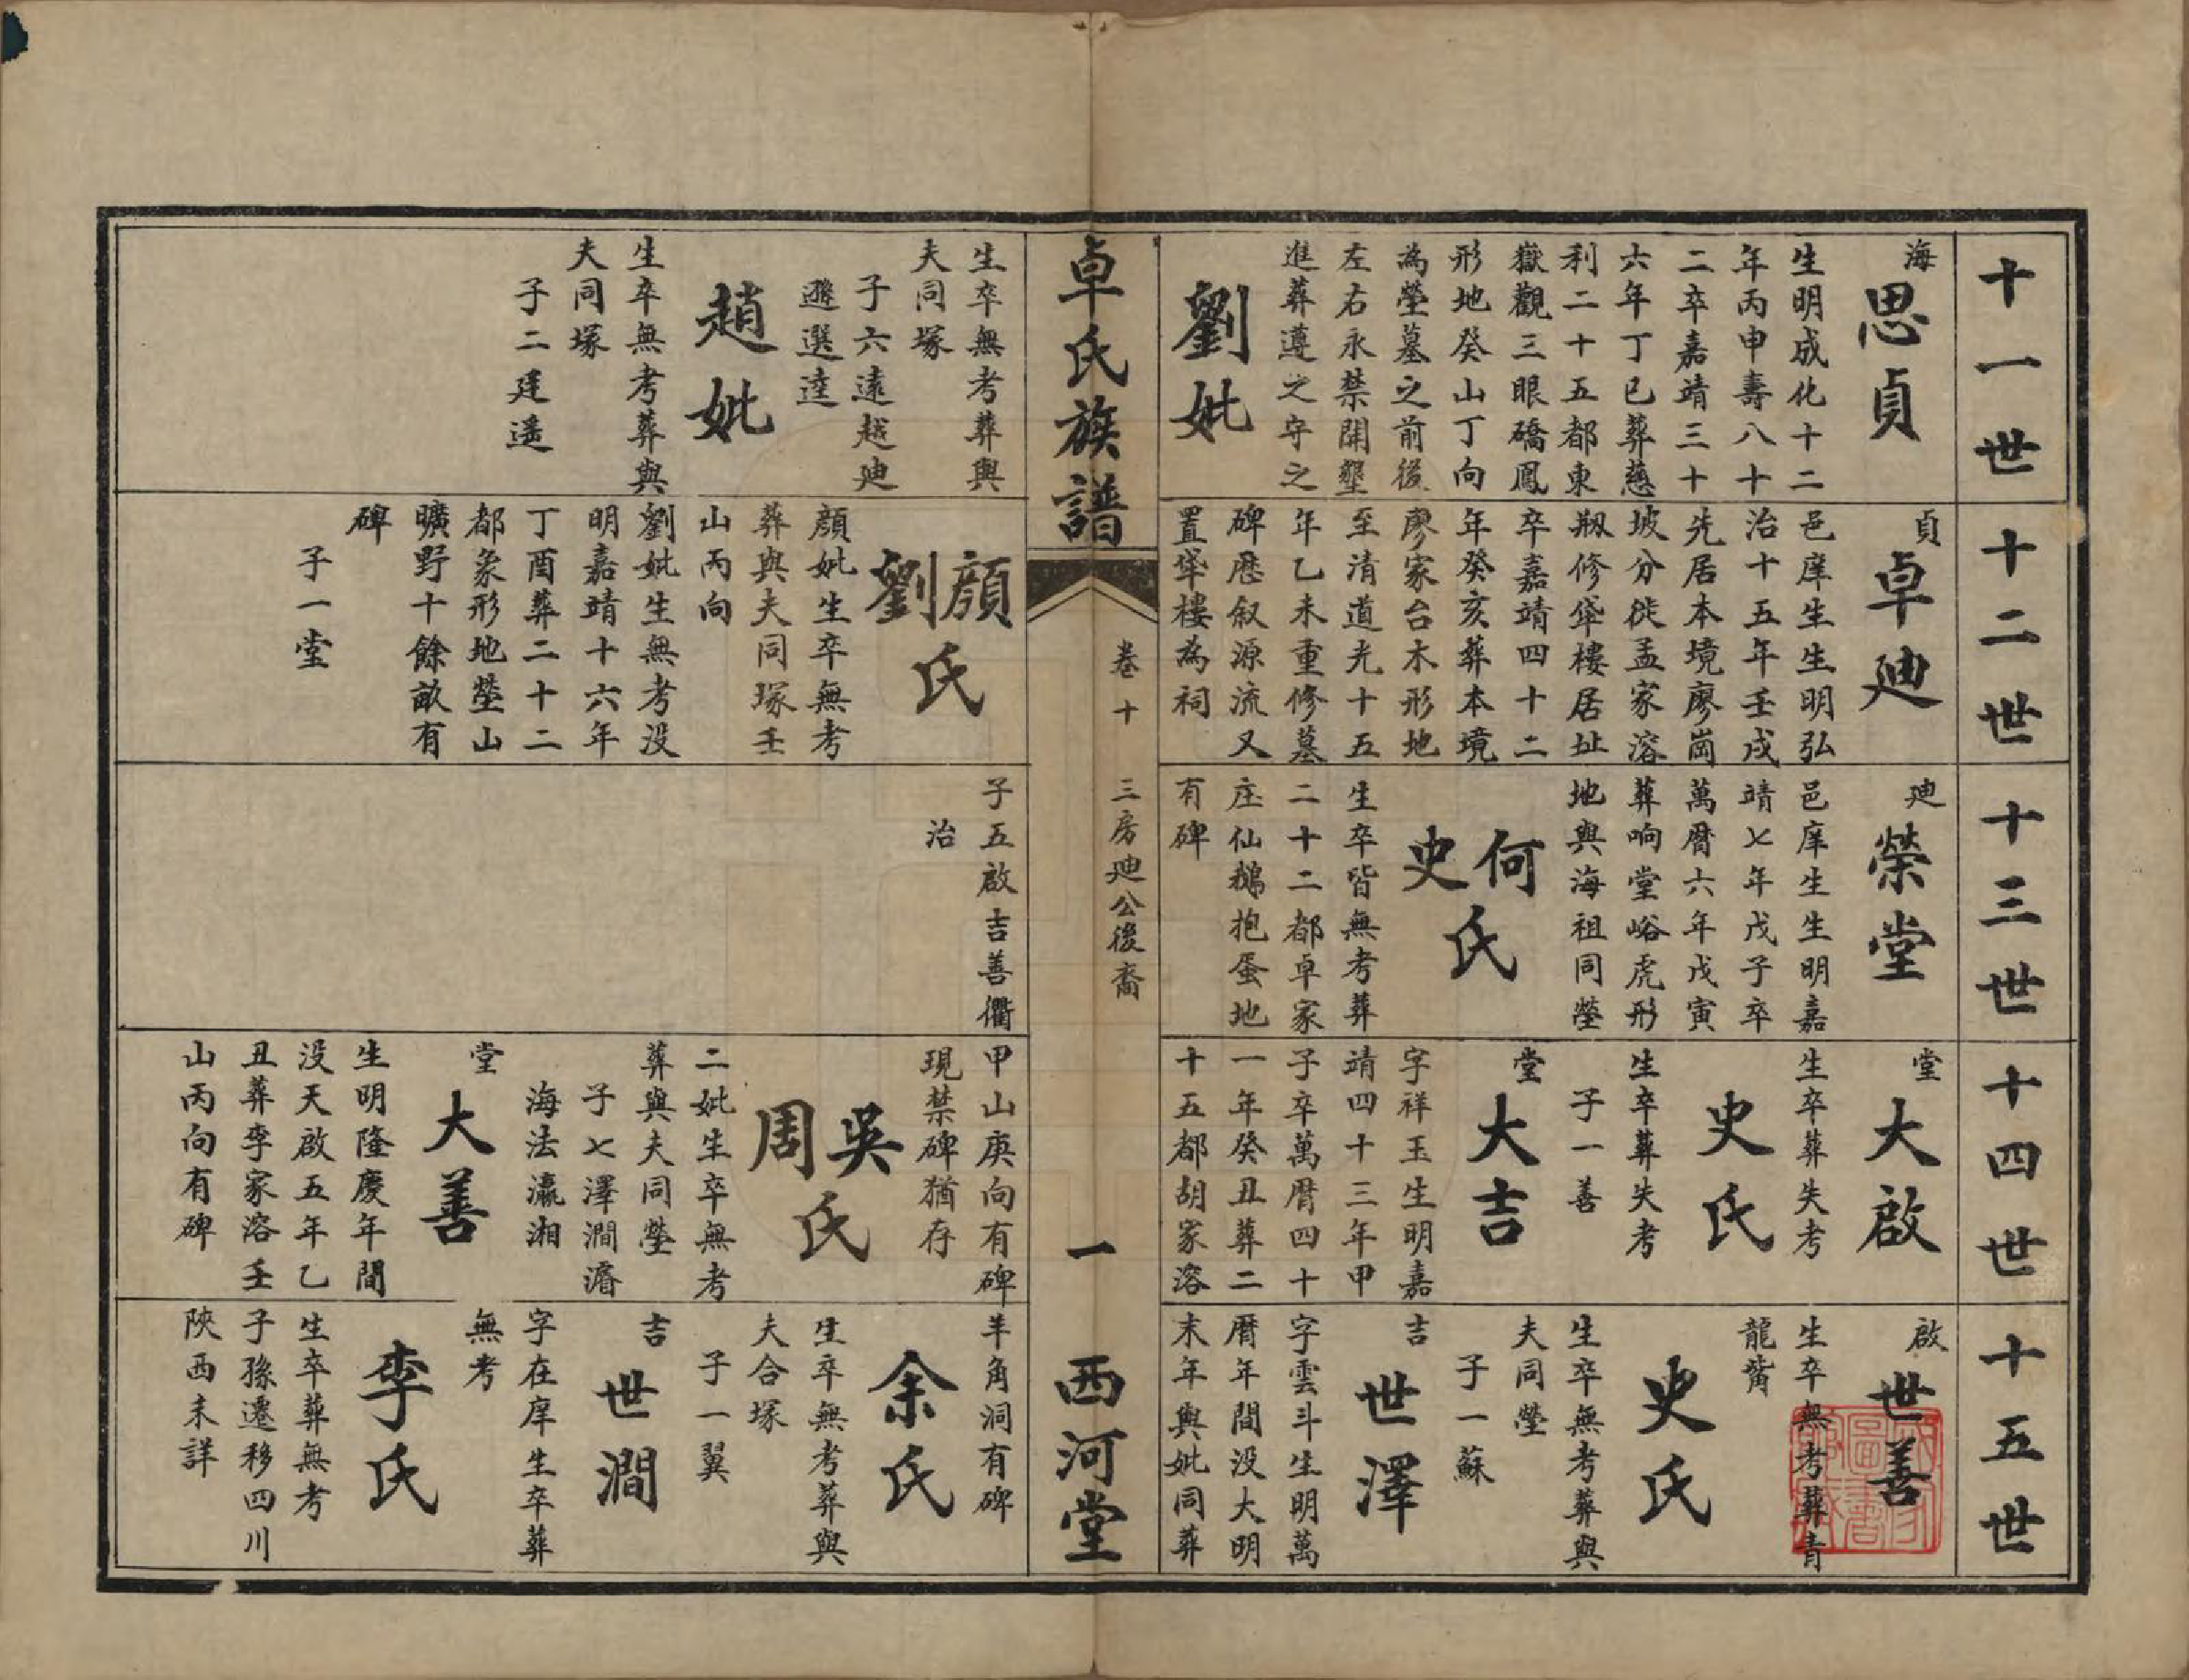 十一世
海
思貞
生明成化十二
年丙申壽八十
二卒嘉靖三十
六年丁巳葬慈
利二十五都東
嶽觀三眼礄鳳
形地癸山丁向
為塋墓之前後
左右永禁開墾
進葬遵之守之
劉妣
生卒無考葬與
夫同塚
子六遠越廸
遜選逵
趙妣
生卒無考葬與
夫同塚
子二廷遥
十二世
貞
卓廸
邑庠生生明弘
治十五年壬戌
先居本境廖崗
坡分徙孟家溶
剏修華樓居址
卒嘉靖四十二
年癸亥葬本境
廖家台木形地
至清道光十五
年乙未重修墓
碑歷叙源流又
置華樓為祠
顏劉氏
顏妣生卒無考
葬與夫同塚壬
山丙向
劉妣生無考没
明嘉靖十六年
丁酉葬二十二
都象形地塋山
曠野十餘畝有
碑
子一堂
十三世
廸
榮堂
邑庠生生明嘉
靖七年戊子卒
萬曆六年戊寅
葬响堂峪虎形
地與海祖同塋
何史氏
生卒皆無考葬
二十二都卓家
庄仙鵝抱蛋地
有碑
子五啟吉善衢
治
十四世
堂
大啟
生卒葬失考
史氏
生卒葬失考
子一善
堂
大吉
字祥玉生明嘉
靖四十三年甲
子卒萬曆四十
一年癸丑葬二
十五都胡家溶
甲山庚向有碑
現禁碑猶存
吳周氏
二妣生卒無考
葬與夫同塋
子七澤澗濬
海法瀛湘
堂
大善
生明隆慶年間
没天啟五年乙
丑葬李家溶壬
山丙向有碑
十五世
啟
世善
生卒無考葬青
龍觜
史氏
生卒無考葬與
夫同塋
子一蘇
吉
世澤
字雲斗生明萬
曆年間没大明
末年與妣同葬
羊角洞有碑
余氏
生卒無考葬與
夫合塚
子一翼
吉
世澗
字在庠生卒葬
無考
李氏
生卒葬無考
子孫遷移四川
陝西未詳
卓氏族譜
卷十
三房廸公後裔
一
西河堂